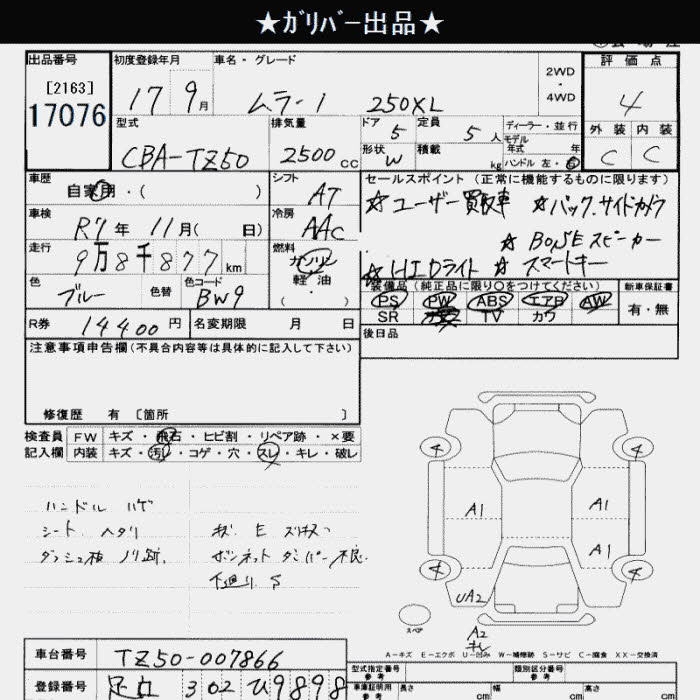 ★ｶﾞﾘﾊﾞｰ出品★
出品番号
[2163]
17076
初度登録年月
17 9月
車名・グレード
ムラーノ 250XL
2WD
・
4WD
評価点
4
外装 内装
C C
型式
CBA-TZ50
排気量
2500cc
ドア 5
定員 5人
形状 W
積載 kg
ディーラー・並行
モデル年式 年
ハンドル 左・右
車歴
自家用・( )
シフト
AT
車検
R7年 11月( 日)
冷房
AAC
走行
9万8千877km
燃料
ガソリン
軽油
( ・ )
色
ブルー
色替
色コード
BW9
R券 14400円
名変期限 月 日
セールスポイント (正常に機能するものに限ります)
☆ユーザー買取車 ☆バック.サイドカメラ
☆BOSEスピーカー
☆HIDライト ☆スマートキー
装備品 (純正品に限り○をつけてください)
PS PW ABS エアB AW
SR TV カワ
新車保証書
有・無
後日品
注意事項申告欄(不具合内容等は具体的に記入して下さい)
修復歴 有 〔箇所 〕
検査員記入欄
FW キズ・飛石・ヒビ割・リペア跡・×要
内装 キズ・汚れ・コゲ・穴・スレ・キレ・破レ
ハンドル ハゲ
シート ヘタリ
ダッシュ板 ノリ跡.
キズ E スリキズ
ボンネット ダンパー不良.
下廻り S
4 4
A1 A1
A1
4 4
UA2
スペア
A2
キレ
A-キズ E-エクボ U-凹み W-補修跡 S-サビ C-腐食 XX-交換済
車台番号 TZ50-007866
登録番号 足立 302 ひ9898
型式指定番号
参考
類別区分番号
参考
車庫証明用
参考
長さ cm
幅 cm
高さ cm